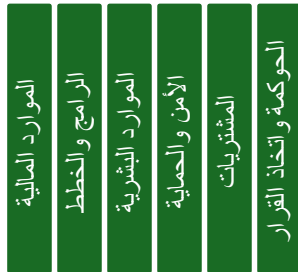 الحوكمة واتخاذ القرار
المشتريات
الأمن والحماية
الموارد البشرية
الرامج والخطط
الموارد المالية